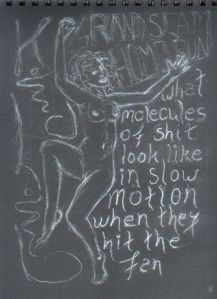 what
molecules
of shit
look like
in slow
motion
when they
hit the
fan